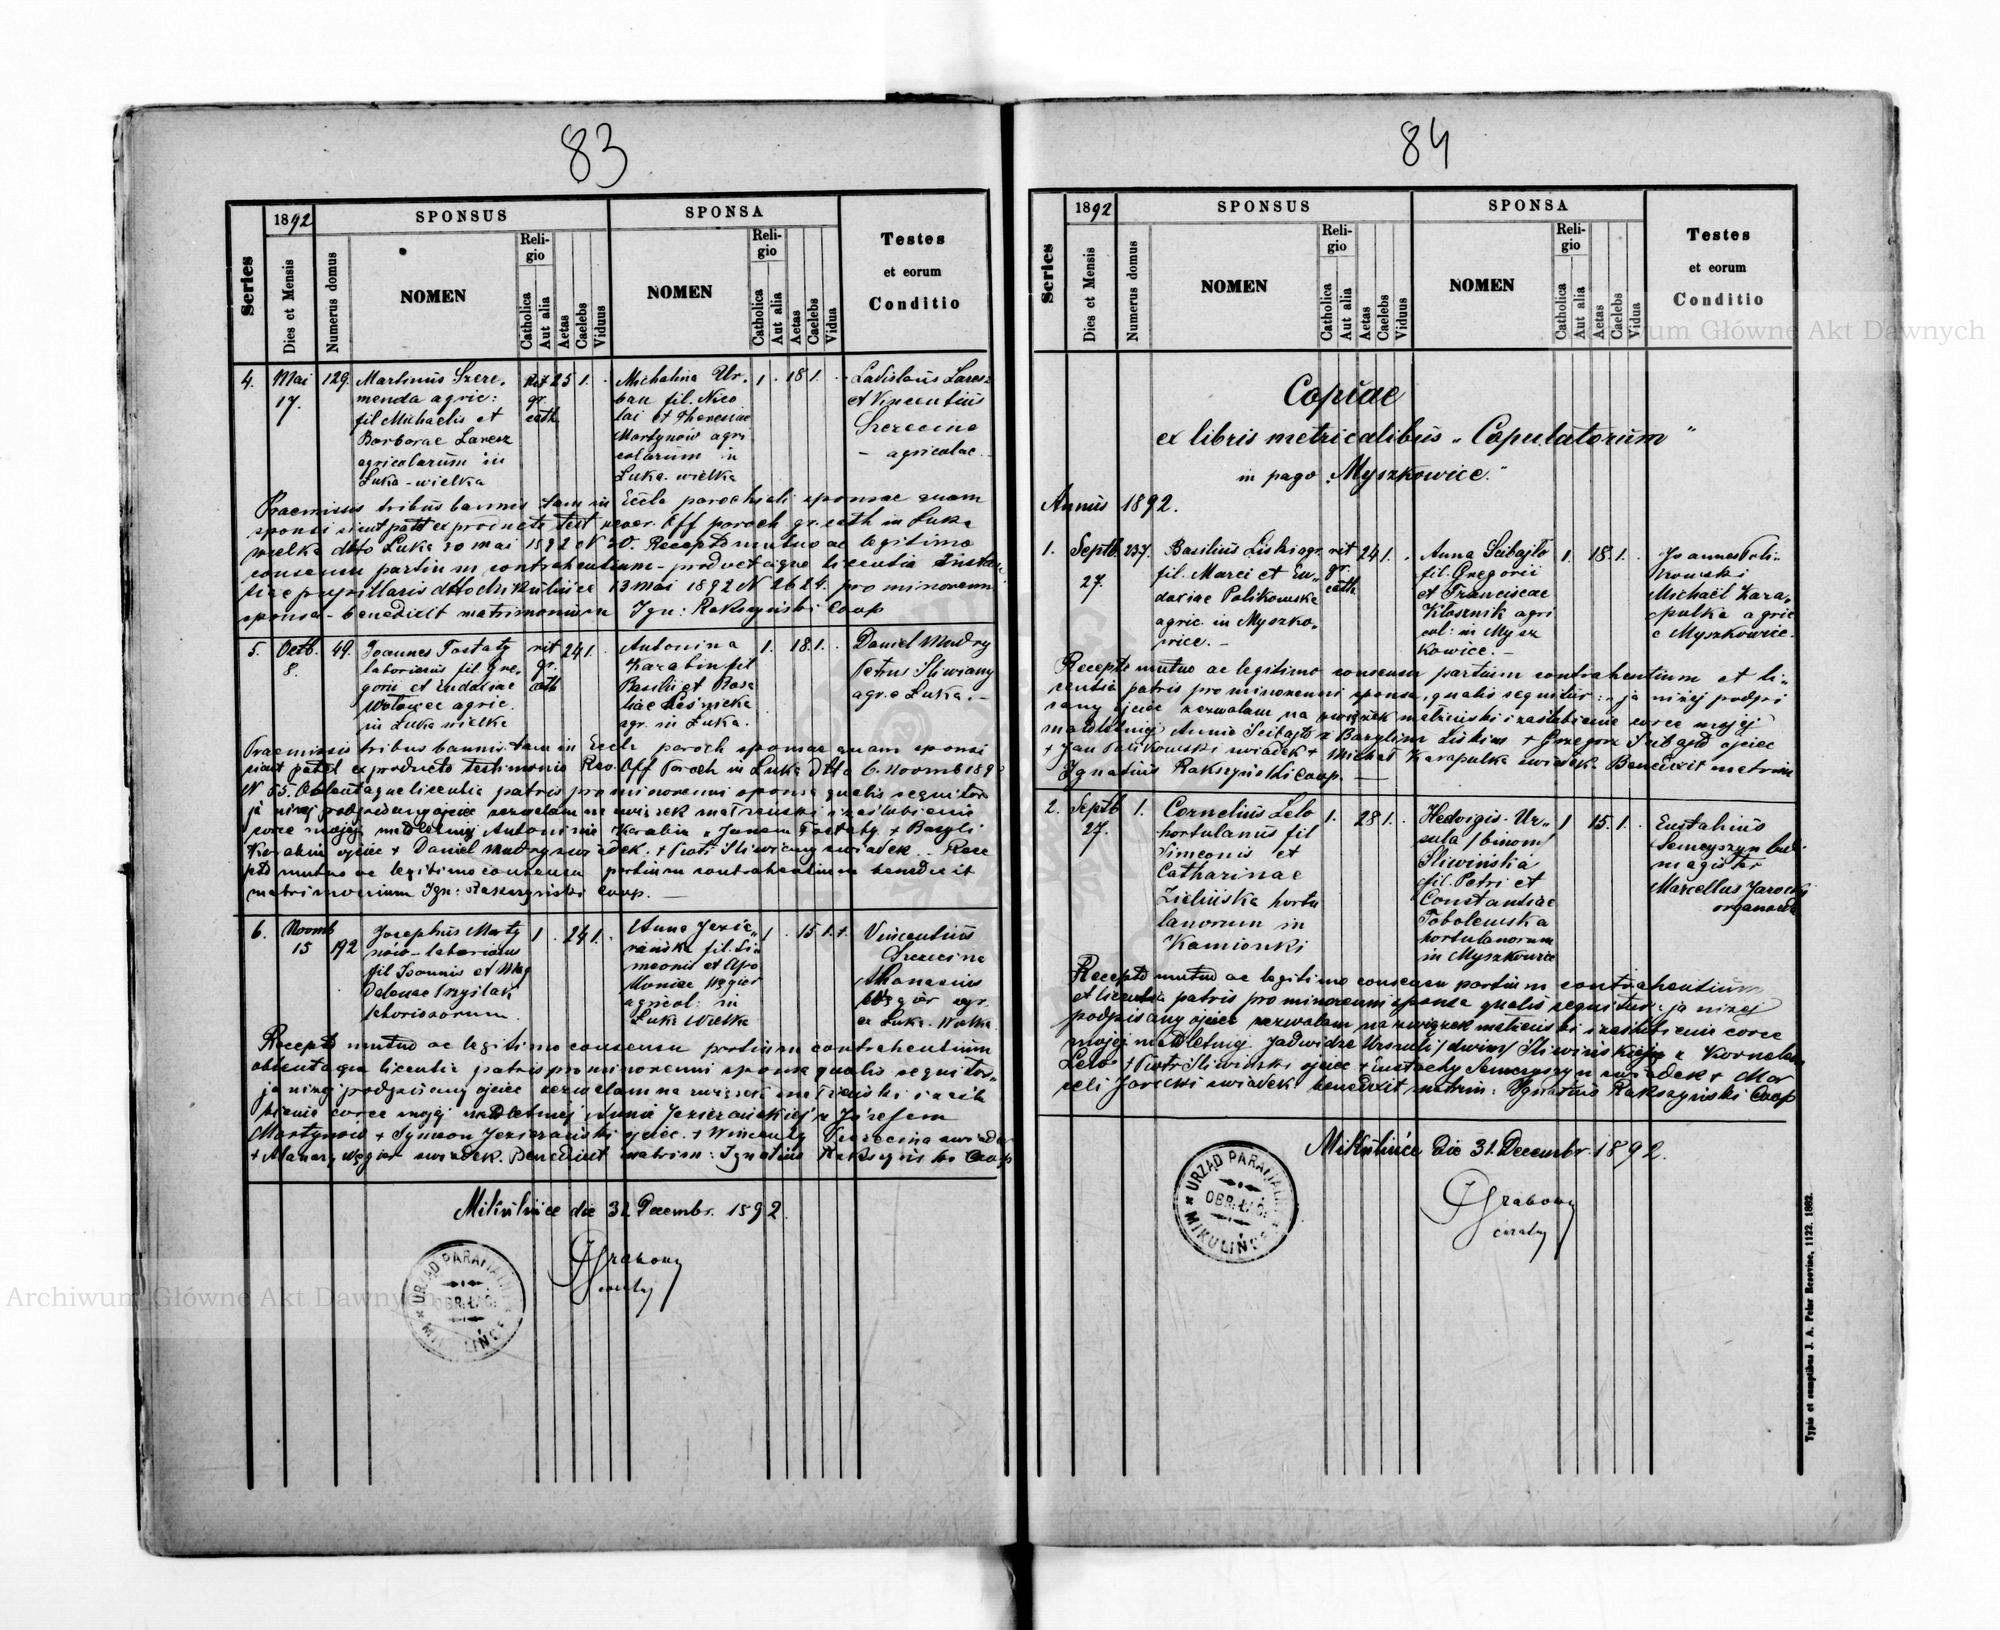 83
1892
SPONSUS
SPONSA
Series
Dies et Mensis
Numerus domus
NOMEN
Religio
Catholica
Aut alia
Aetas
Caelebs
Viduus
NOMEN
Religio
Catholica
Aut alia
Aetas
Caelebs
Vidua
Testes
et eorum
Conditio
4. Mai 17. 129.
Martinus Szere-
menda agric:
fil Michaelis et
Barbarae Laresz
agricolarum in
Luka-wielka
rit gr. cath. 25 1.
Michalina Ur-
ban fil. Nico
lai et Theresiae
Martynów agri
colarum in
Luka-wielka
1 . 18 1.
Ladislaus Laresz
et Vincentius
Szerecina
- agricolae.
Praemissis tribus bannis tam in Eccla parochiali sponsae quam
sponsi sicut patet ex producto test rever. Off paroch gr. cath in Luka
wielka dtto Luka 20 mai 1892 N 20. Recepto mutuo ac legitimo
consensu partium contrahentium - productaque licentia Instan
tiae pupillaris dtto Mikulińce 13 Mai 1892 N 2624. pro minorenni
sponsa - benedixit matrimonium Ign: Rakszyński Coop
5. Octb. 8. 49.
Joannes Tostaty
laboriosus fil Gre-
gorii et Eudoxiae
Wołowiec agric.
in Luka wielka
rit gr. cath 24 1.
Antonina
Karabin fil
Basilii et Rosa
liae Leśnicka
agr. in Luka.
1. 18. 1.
Daniel Mudry
Petrus Sliwiany
agr. e Luka. -
Praemissis tribus bannis tam in Eccla paroch sponsae quam sponsi
sicut patet ex producto testimonio Rev. Off Paroch in Luka dtto 6. Novmb 189
N 55. Obtentaque licentia patris pro minorenni sponsa qualis sequitor
ja niżej podpisany ojciec zezwalam na związek małżeński i zaślubienie
corce mojej małoletniej Antoninie Karabin z Janem Tostaty. + Bazyli
Karabin ojciec + Daniel Mudry świadek. + Piotr Sliwiany świadek. - Rece
pto mutuo ac legitimo consensu partium contrahentium benedixit
matrimonium Ign: Rakszyński Coop. -
6. Novmb 15 192
Josephus Marty
nów - laboriosus
fil Joannis et Mag
dalenae Przyślak
laboriosorum.
1 . 24 1.
Anna Jezie-
rańska fil. Si-
meonis et Apo
loniae Węgier
agricol: in
Luka wielka
1 . 15 1.
Vincentius
Szerecina
Athanasius
Węgier agr.
ex Luka. Wielka
Recepto mutuo ac legitimo consensu partium contrahentium
obtentaque licentia patris pro minorenni sponsa qualis sequitor-
ja niżej podpisany ojciec zezwalam na związek małżeński i zaślu
bienie corce mojej małoletniej Annie Jezierańskiej z Józefem
Martynów + Symeon Jezierański ojciec. + Wincenty Szerecina świadek
+ Atanazy Węgier świadek. Benedixit matrim: Ignatius Rakszyński Coop
Mikulińce die 31 Decembr. 1892.
JGrabowy
URZĄD PARAFIALNY
OBR. ŁAC.
MIKULIŃCE
84
1892
SPONSUS
SPONSA
Series
Dies et Mensis
Numerus domus
NOMEN
Religio
Catholica
Aut alia
Aetas
Caelebs
Viduus
NOMEN
Religio
Catholica
Aut alia
Aetas
Caelebs
Vidua
Testes
et eorum
Conditio
Copiae
ex libris metricalibus „Copulatorum"
in pago „Myszkowice."
Annus 1892.
1. Septb. 27. 237.
Basilius Liski agr.
fil. Marci et Eu-
doxiae Polikowska
agric in Myszko-
wice. -
rit gr cath 24 1.
Anna Scibajło
fil. Gregorii
et Franciscae
Kłosznik agri
col: in Mysz
kowice. -
1. 18. 1.
Joannes Poli-
kowski
Michaël Kara-
pulka agric
e Myszkowic.
Recepto mutuo ac legitimo consensu partium contrahentium et li-
centia patris pro minorenni sponsa, qualis sequitur: - ja niżej podpi
sany ojciec zezwalam na związek małżeński i zaślubienie corce mojej
małoletniej Annie Scibajło z Bazylim Liskim + Grzegorz Scibajło ojciec
+ Jan Polikowski świadek + Michał Karapulka świadek. Benedixit matrim
Ignatius Rakszyński Coop. -
2. Septb 27. 1.
Cornelius Lelo
hortulanus fil
Simeonis et
Catharinae
Zielińska hortu
lanorum in
Kamionki
1. 28 1.
Hedvigis-Ur-
sula /binom/
Sliwińska
fil. Petri et
Constantiae
Tobolewska
hortulanorum
in Myszkowice
1 15. 1.
Eustahius
Semczyszyn lud-
magister
Marcellus Jarecki
organarius
Recepto mutuo ac legitimo consensu partium contrahentium
et licentia patris pro minorenni sponsa qualis sequitur: ja niżej
podpisany ojciec zezwalam na związek małżeński i zaślubienie corce
mojej małoletniej Jadwidze Urszuli /dwim/ Sliwińskiej z Kornelem
Lelo + Piotr Sliwiński ojciec + Eustachy Semczyszyn świadek + Mar
celi Jarecki świadek benedixit matrim: Ignatius Rakszyński Coop
Mikulińce die 31. Decembr. 1892.
JGrabowy
URZĄD PARAFIALNY
OBR. ŁAC.
MIKULIŃCE
Typis et sumptibus J. A. Pelar Resoviae, 1122. 1882.
Archiwum Główne Akt Dawnych
Archiwum Główne Akt Dawnych